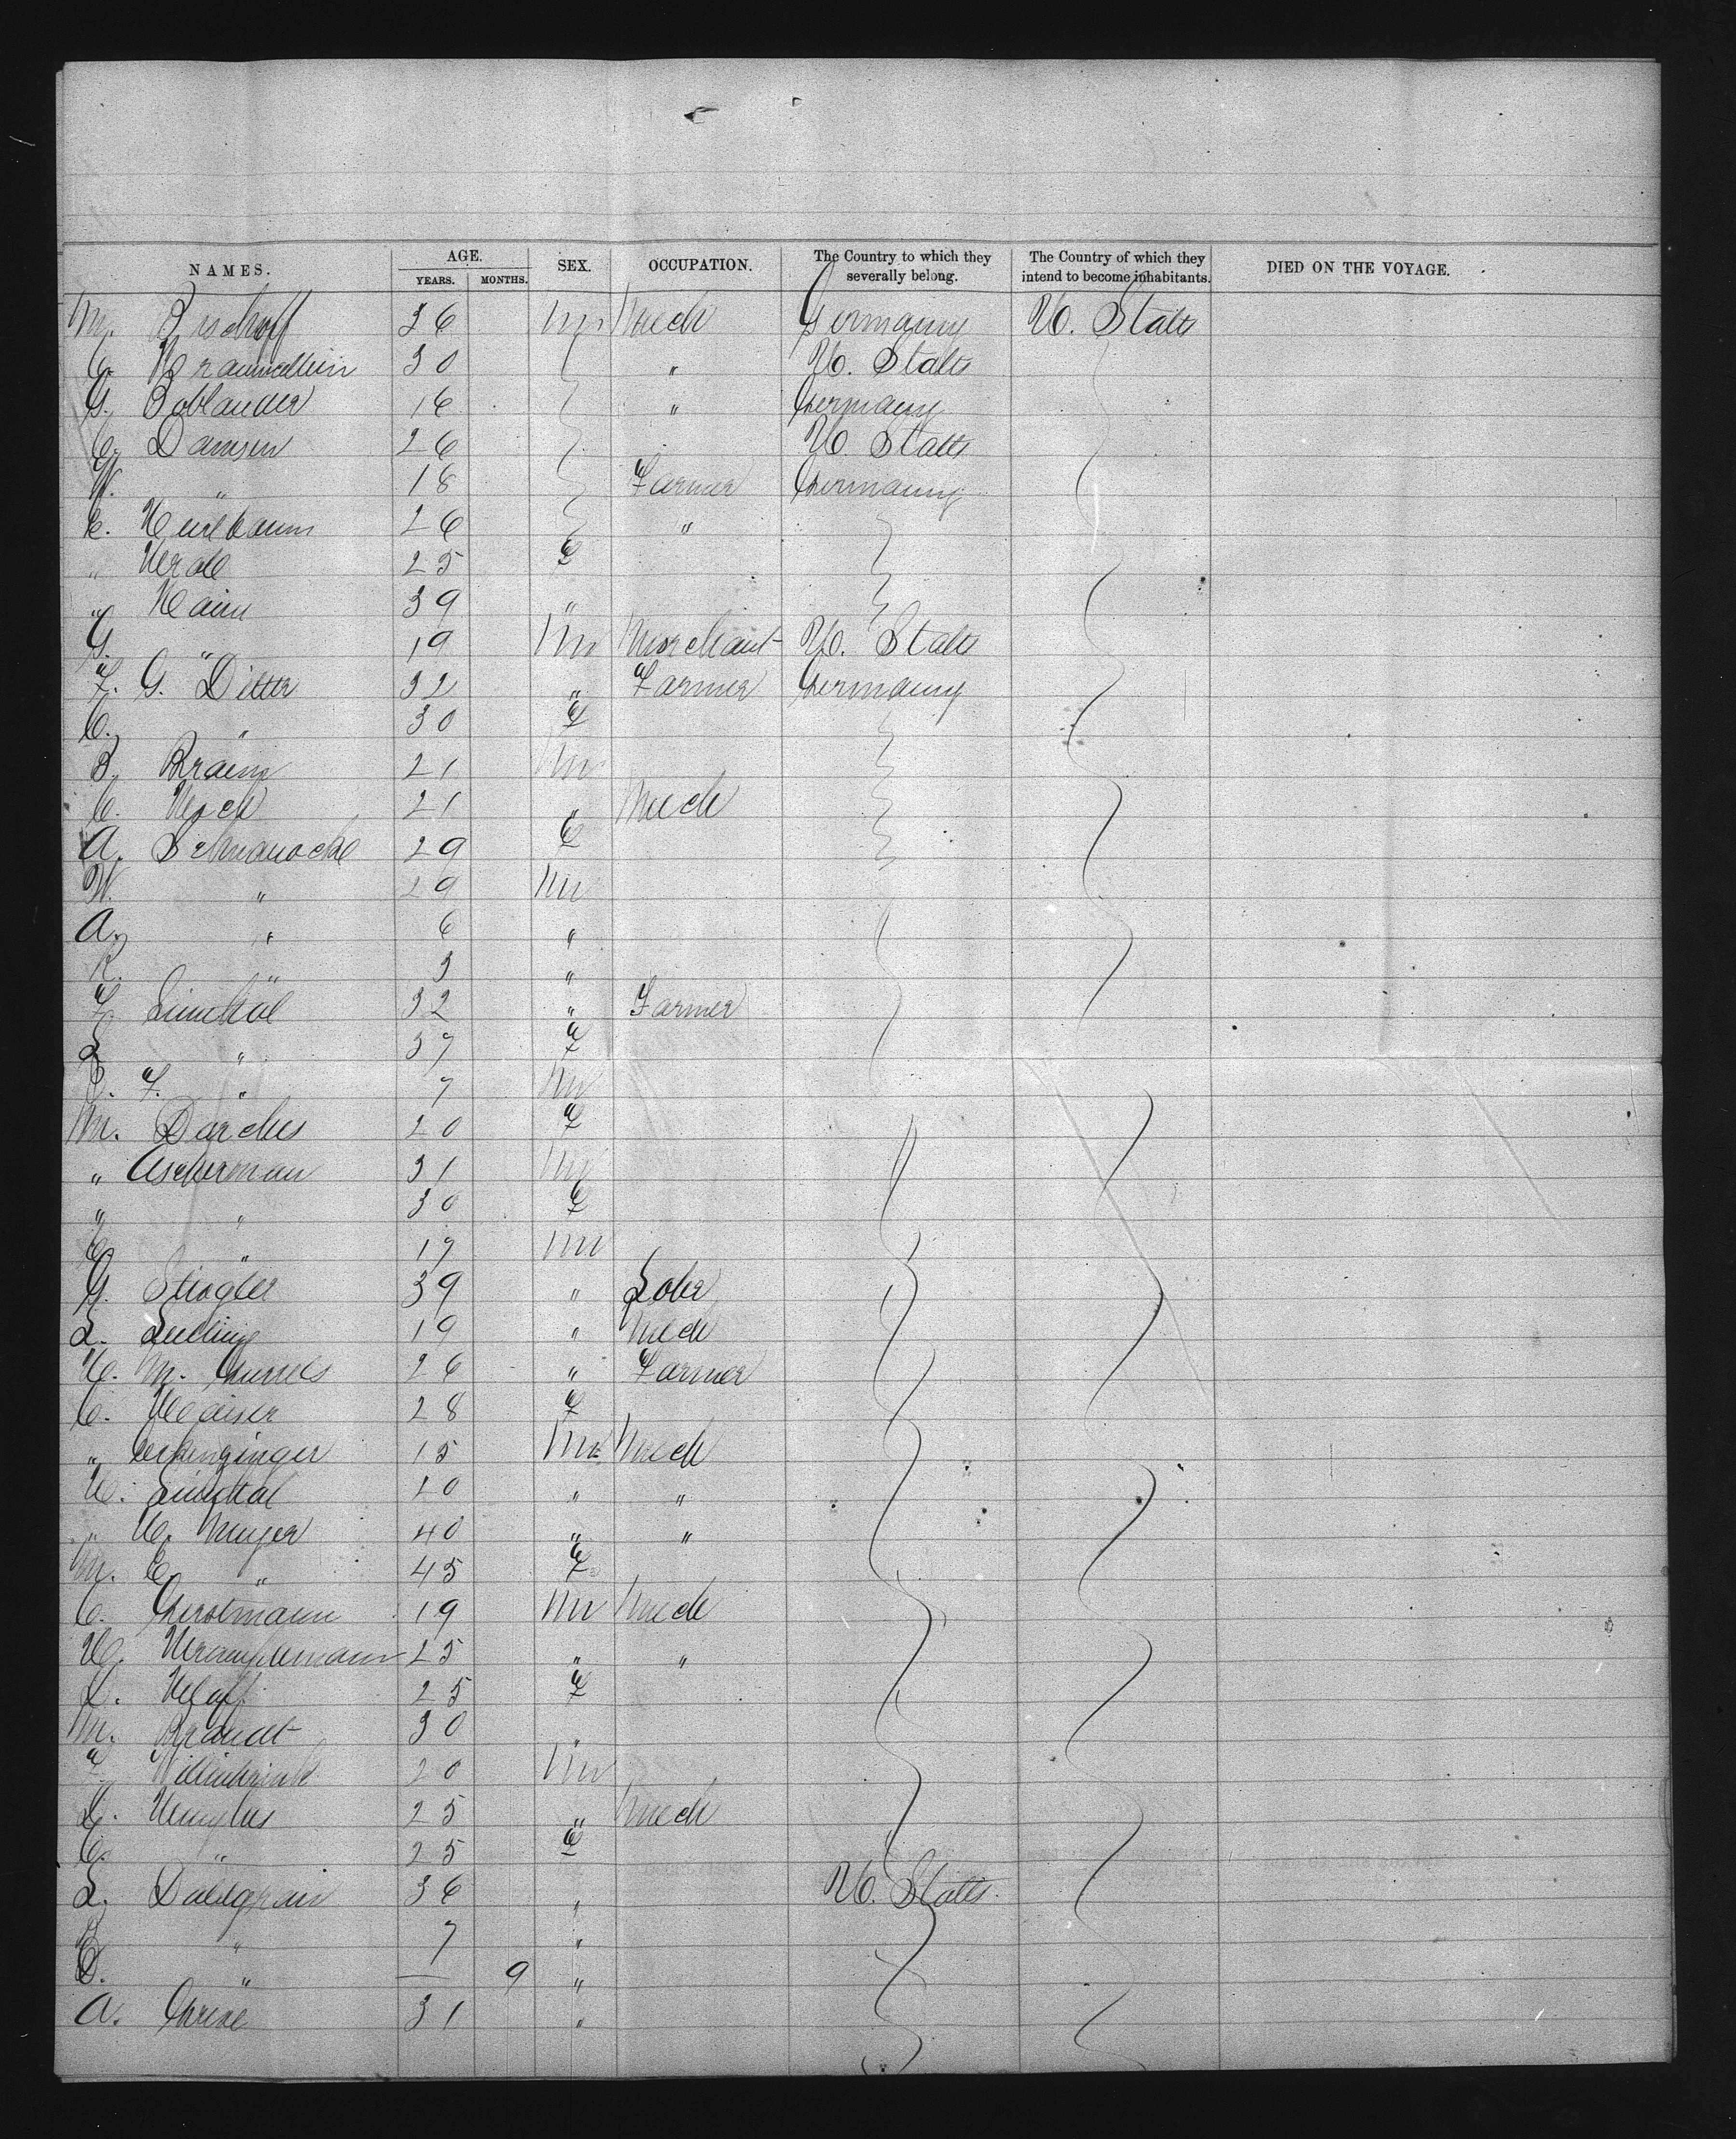 NAMES. AGE. YEARS. MONTHS. SEX. OCCUPATION. The Country to which they severally belong. The Country of which they intend to become inhabitants. DIED ON THE VOYAGE.
M. Bischoff 36 M Mech Germany U. States
C. 30 " U. States
G. Boblander 16 " Germany
C. Damsen 26 U. States
W. " 18 Farmer Germany
26 "
" 25 F
" Hain 39 "
G. " 19 M Merchant U. States
F. G. Ditter 32 " Farmer Germany
C. " 30 F
B. Braun 21 M
C. Koch 21 " Mech
A. 29 F
W. " 29 M
A. " 6 "
R. " 3 "
F. Linothal 32 " Farmer
L. " 37 F
C. F. " 7 M
M. Darches 20 F
" Ackerman 31 M
" " 30 F
C. " 17 M
G. Stiogler 39 " Lober
L. 19 " Mech
H. M. 26 " Farmer
C. Kaiser 28 F
" 15 M Mech
H. 20 " "
" H. Meyer 40 " "
M. C. " 45 F
C. Gerstmann 19 M Mech
H. 25 " "
L. 25 F
M. Brandt 30 "
F. 20 M
L. 25 " Mech
C. " 25 F
L. Dallgrun 36 " U. States
B. " 7 "
C. " — 9 "
A. 31 "